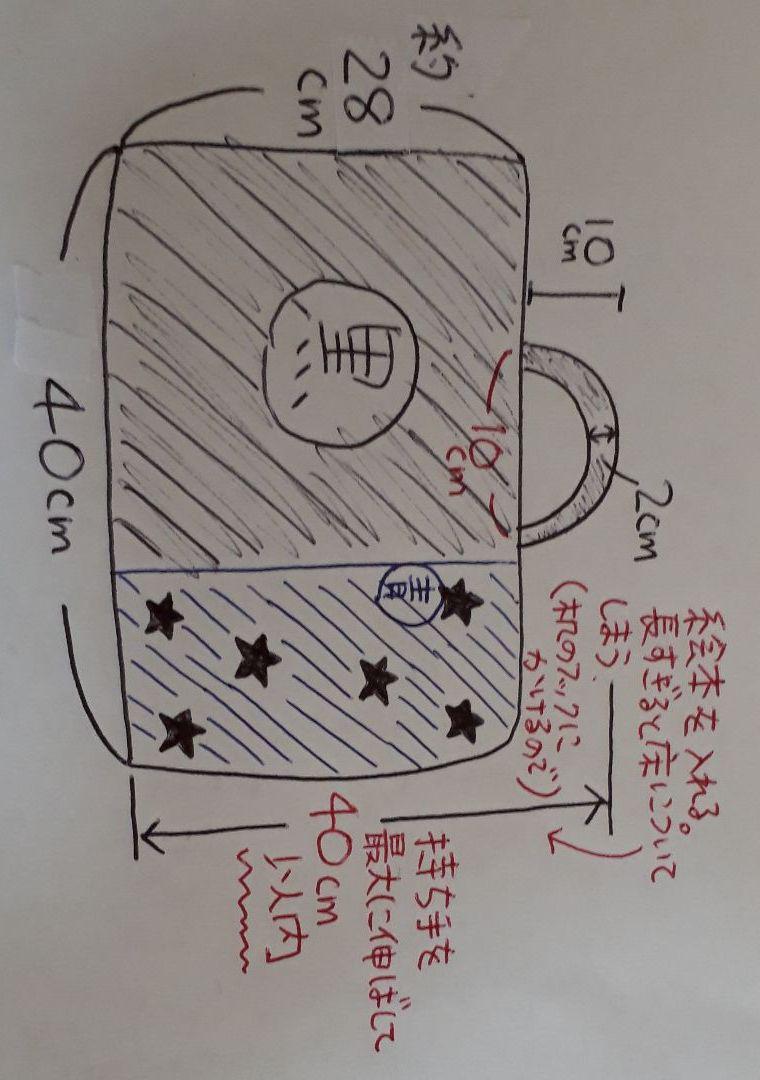 絵本を入れる。
長すぎると床について
しまう.
(机のフックに
かけるので)
2cm
10
cm
10
cm
約
28
cm
黒
青
持ち手を
最大に伸ばして
40cm
以内
40cm